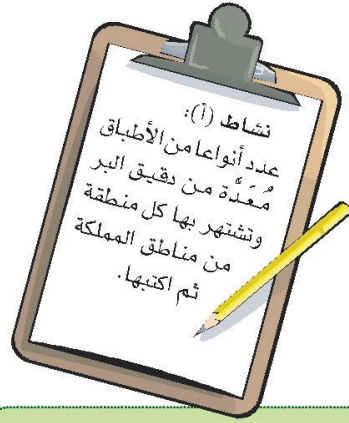 نشاط (أ):
عدد أنواعا من الأطباق
مُعَدَّة من دقيق البر
وتشتهر بها كل منطقة
من مناطق المملكة
ثم اكتبها.